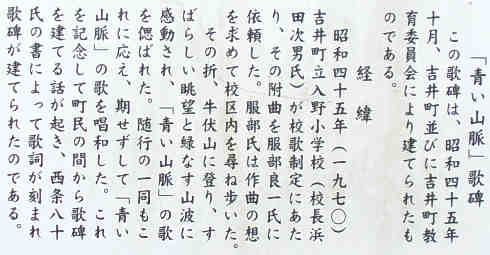 「青い山脈」歌碑
この歌碑は、昭和四十五年
十月、吉井町並びに吉井町教
育委員会により建てられたも
のである。
経緯
昭和四十五年(一九七〇)
吉井町立入野小学校(校長浜
田次男氏)が校歌制定にあた
り、その附曲を服部良一氏に
依頼した。服部氏は作曲の想
を求めて校区内を尋ね歩いた。
その折、牛伏山に登り、す
ばらしい眺望と緑なす山波に
感動され、「青い山脈」の歌
を偲ばれた。随行の一同もこ
れに応え、期せずして「青い
山脈」の歌を唱和した。これ
を記念して町民の間から歌碑
を建てる話が起き、西条八十
氏の書によって歌詞が刻まれ
歌碑が建てられたのである。